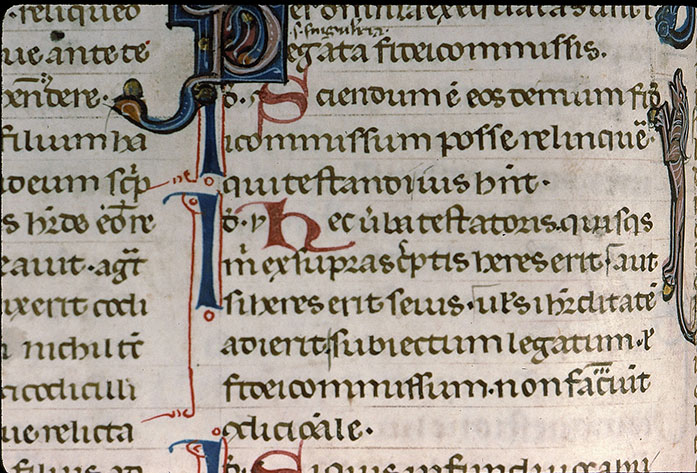 .reliqueo
ue ante te
bendere.
filium ha
ideum scp
s hrde eo re
eauit. agat
ixerit codi
i nichil tr
cicodicilli
ue relicta
filius ad
Per omnia exequata sunt
s. singularia
legata fideicommissis.
Sciendum e eos demum fid
icommissum posse relinque
qui testandi ius hnt.
Hec uba testatoris. quisqs
m ex supra scptis heres erit. aut
si heres erit seius. ul si hrditate
adierit. subiectum legatum. l
fideicommissum. non faciut
codicidale.
Si quis in fundi uocabu